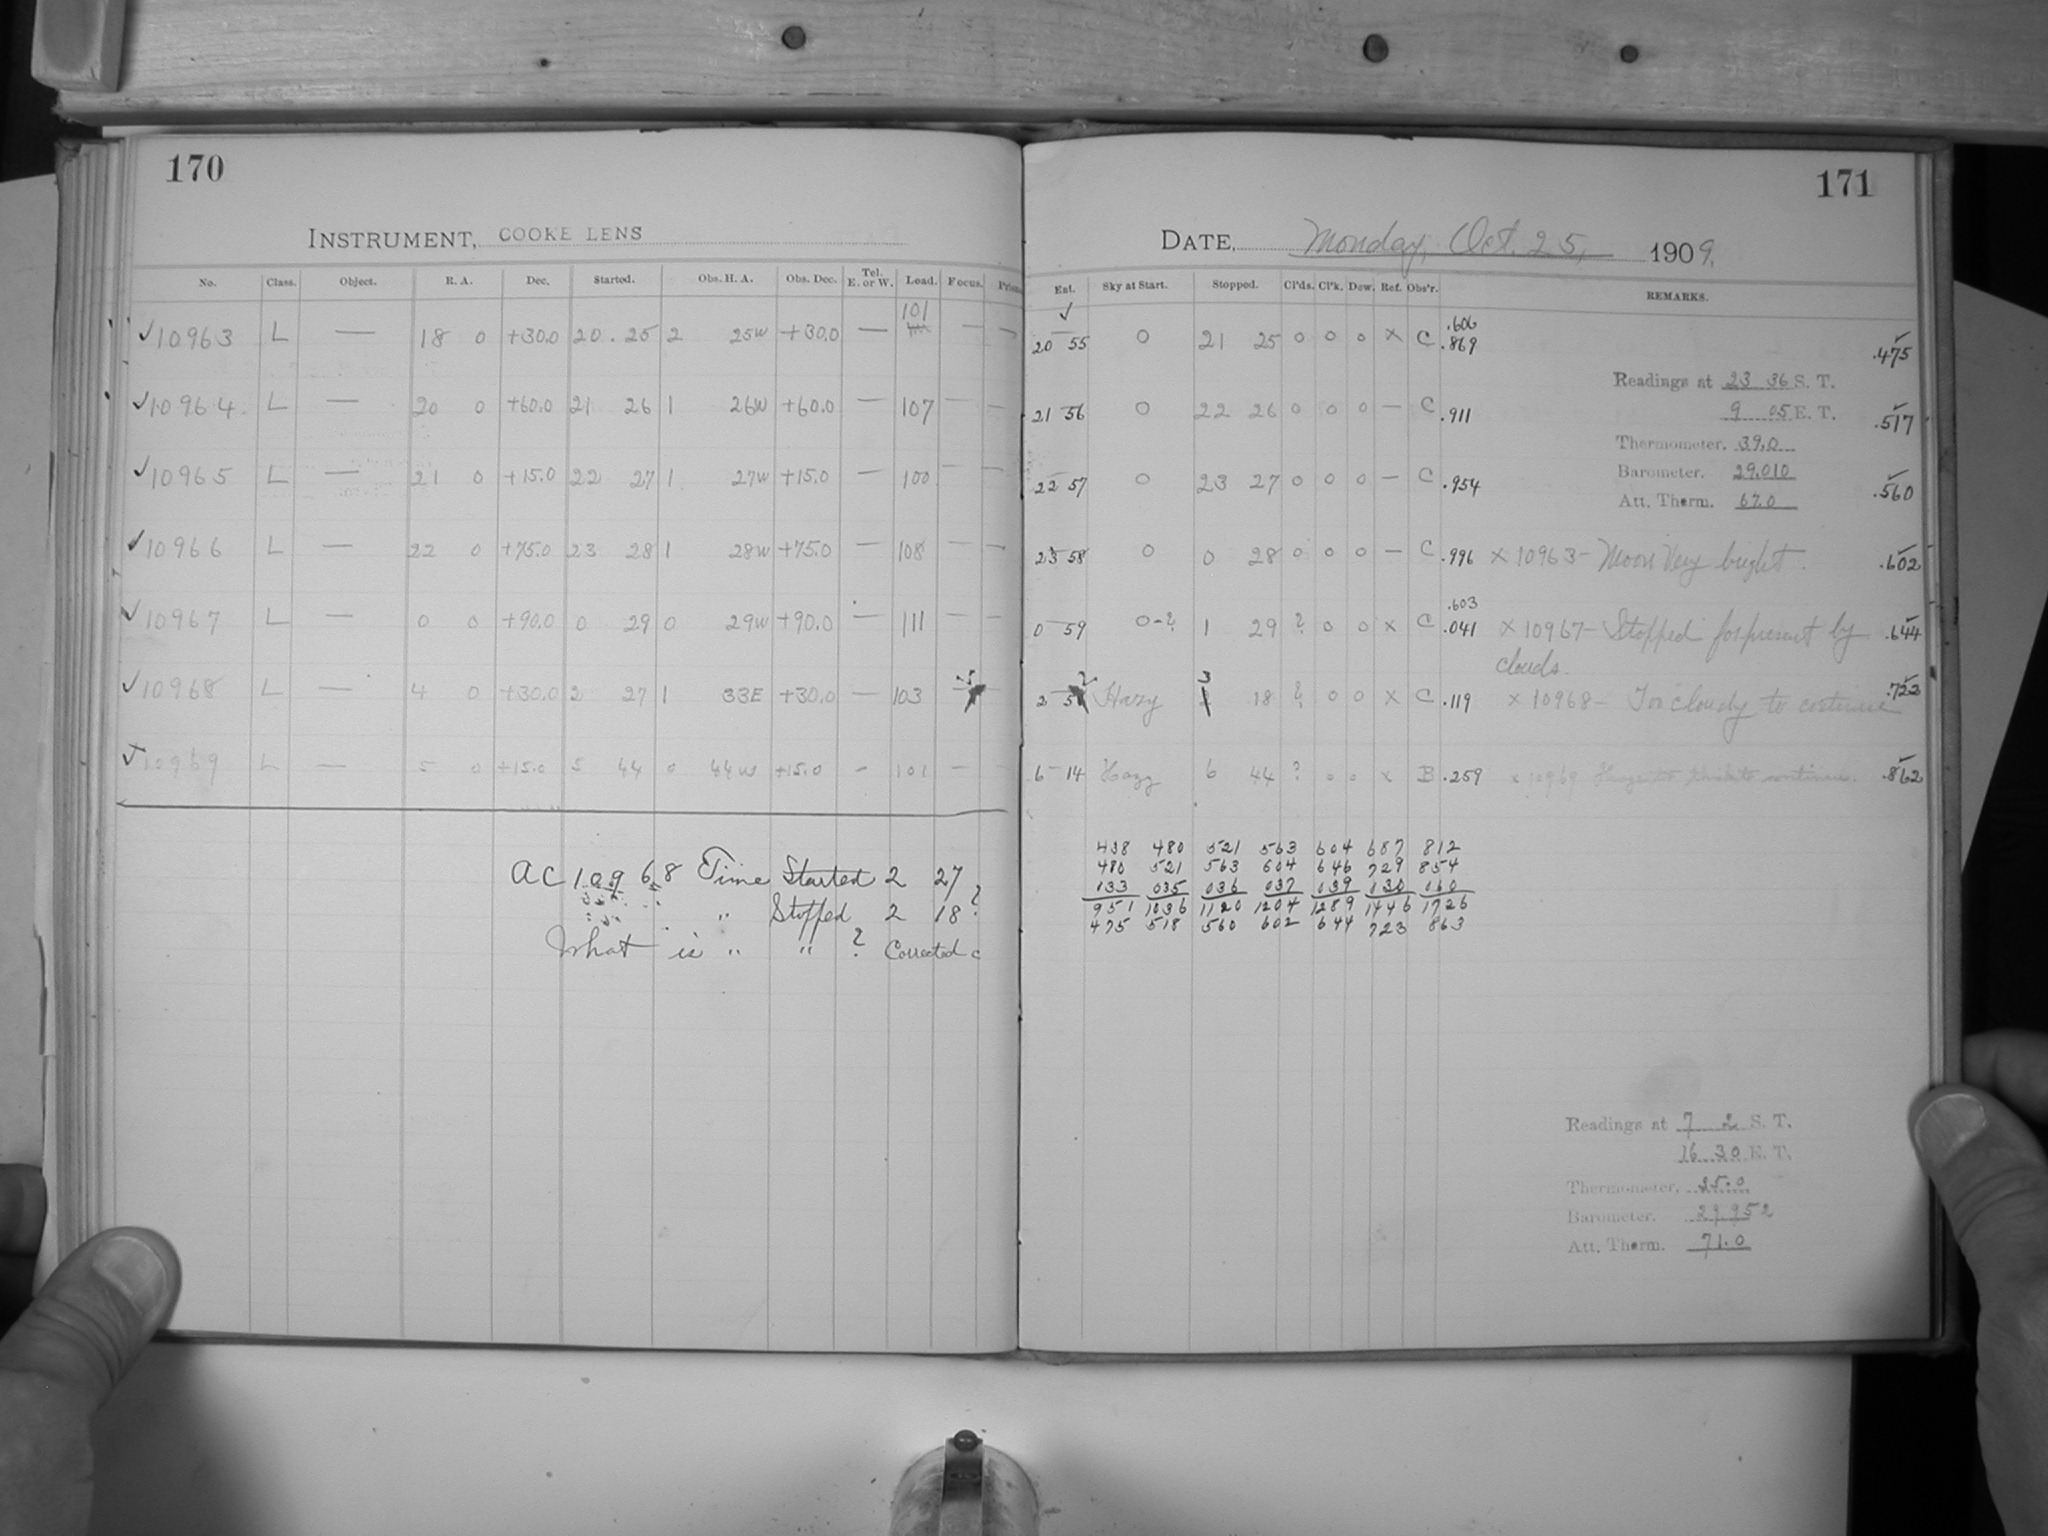 170
INSTRUMENT, COOKE LENS
No. Class. Object. R. A. Dec. Started. Obs. H. A. Obs. Dec. Tel. E. or W. Load. Focus. Prism
101
✓10963 L — 18 0 +30.0 20 . 25 2 25W +30.0 — — —
✓10964. L — 20 0 +60.0 21 26 1 26W +60.0 — 107 — —
✓10965 L — 21 0 +15.0 22 27 1 27W +15.0 — 100 — —
✓10966 L — 22 0 +75.0 23 28 1 28W +75.0 — 108 — —
✓10967 L — 0 0 +90.0 0 29 0 29W +90.0 — 111 — —
✓10968 L — 4 0 +30.0 2 27 1 33E +30.0 — 103 —
✓10969 L — 5 0 +15.0 5 44 0 44W +15.0 – 101 — —
AC 10968 Time Started 2 27
" Stopped 2 18 ?
What is " " ? Corrected c
171
DATE, Monday, Oct. 25, 1909.
Ext. Sky at Start. Stopped. Cl'ds. Cl'k. Dew. Ref. Obs'r. REMARKS.
✓
20 55 0 21 25 0 0 0 × C .606 .869 .475
Readings at 23 36 S. T.
21 56 0 22 26 0 0 0 — C .911 9 05 E. T. .517
Thermometer. 39.0
Barometer. 29.010
22 57 0 23 27 0 0 0 — C .954 .560
Att. Therm. 67.0
23 58 0 0 28 0 0 0 — C .996 × 10963 – Moon Very bright. .602
.603
0 59 0-? 1 29 ? 0 0 × C .041 × 10967 – Stopped for present by .644
clouds.
2 Hazy 3 18 ? 0 0 × C .119 × 10968 – Too cloudy to continue .722
6 14 Hazy 6 44 ? 0 0 × B .259 × 10969 to continue. .862
438 480 521 563 604 687 812
480 521 563 604 646 729 854
033 035 036 037 039 030 060
951 1036 1120 1204 1289 1446 1726
475 518 560 602 644 723 863
Readings at 7 2 S. T.
16 30 E. T.
Thermometer. 25.0
Barometer. 29.952
Att. Therm. 71.0